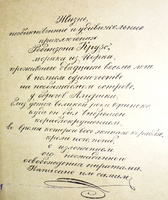 Жизнь,
необыкновенные и удивительные
приключения
Робинзона Крузо,
моряка из Йорка,
прожившего двадцать восемь лет
в полном одиночестве
на необитаемом острове,
у берегов Америки,
близ устья великой реки Ориноко
куда он был выброшен
кораблекрушением,
во время которого весь экипаж корабля,
кроме него, погиб,
с изложением
его неожиданного
освобождения пиратами.
Написано им самим.